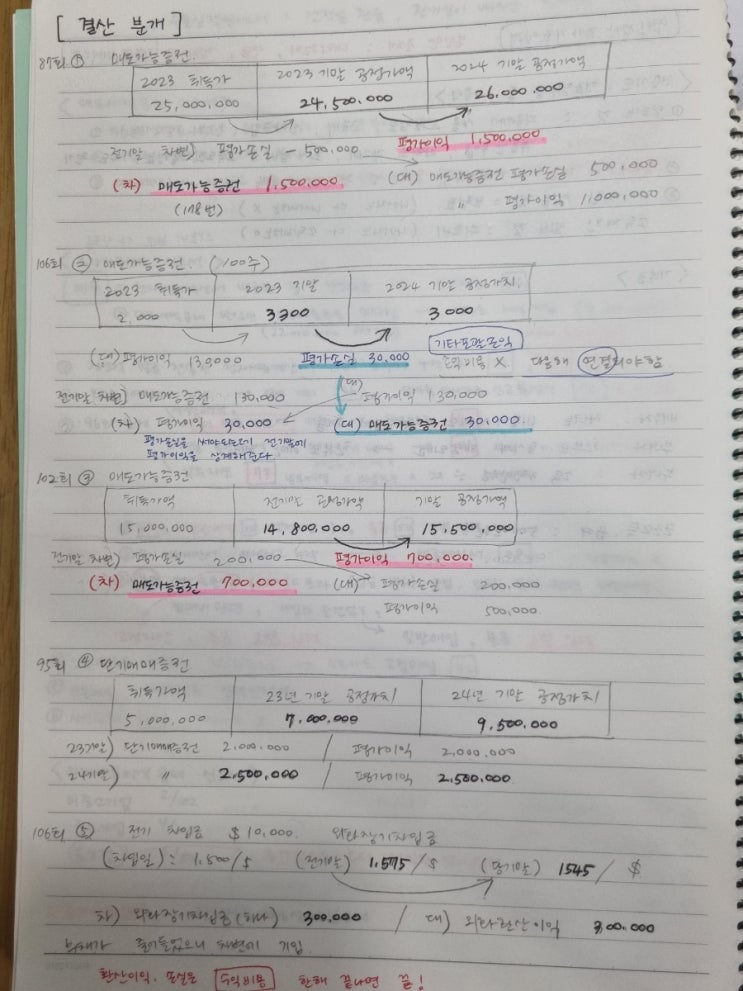 [결산 분개]
87회 ① 매도가능증권.
2023 취득가 2023 기말 공정가액 2024 기말 공정가액
25,000,000 24,500,000 26,000,000
전기말 차변) 평가손실 -500,000 평가이익 1,500,000
(차) 매도가능증권 1,500,000 (대) 매도가능증권 평가손실 500,000
(178번) " 평가이익 1,000,000
106회 ② 매도가능증권. (100주)
2023 취득가 2023 기말 2024 기말 공정가치.
2.000 3300 3000
(대) 평가이익 130000 평가손실 30,000 기타포괄손익 손익비용 X 다음해 연결해야함
전기말 차변) 매도가능증권 130,000 (대) 평가이익 130,000
(차) 평가이익 30,000 (대) 매도가능증권 30,000
평가손실을 써야되는데 전기말에
평가이익을 상계해준다
102회 ③ 매도가능증권
취득가액 전기말 공정가액 기말 공정가액
15,000,000 14,800,000 15,500,000
전기말 차변) 평가손실 200,000 평가이익 700,000.
(차) 매도가능증권 700,000 (대) 평가손실 200,000
평가이익 500,000
95회 ④ 단기매매증권
취득가액 23년 기말 공정가치 24년 기말 공정가치
5,000,000 7.000,000 9.500,000
23기말) 단기매매증권 2.000,000 / 평가이익 2,000,000
24기말) " 2.500,000 / 평가이익 2,500,000
106회 ⑤ 전기 차입금 $10,000. 외화장기차입금
(차입일): 1.500/$ (전기말) 1.575/$ (당기말) 1545/$
차) 외화장기차입금(하나) 300,000 / 대) 외화환산이익 300,000
부채가 줄어들었으니 차변에 기입.
환산이익. 손실은 수익비용 한해 끝나면 끝!